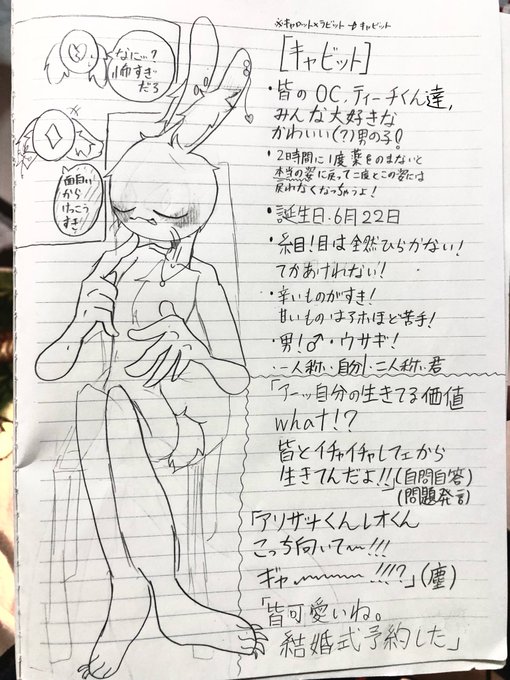 ※キャロット×ラビット→キャビット
[キャビット]
・皆のOC、ティーチくん達,
みんな大好きな
かわいい(?)男の子!
・2時間に1度薬をのまないと
本当の姿に戻って二度とこの姿には
戻れなくなっちゃうよ!
・誕生日.6月22日
・糸目!目は全然ひらかない!
てかあけれない!
・辛いものがすき!
甘いものはアホほど苦手!
・男!♂・ウサギ!
・一人称・自分・二人称・君
「アーッ自分の生きてる価値
what!?
皆とイチャイチャしてェから
生きてんだよ!!」(自問自答)
(問題発言)
「アリサナくんレオくん
こっち向いて〜!!!
ギャ〜〜!!!?」(塵)
「皆可愛いね。
結婚式予約した」
なに…?
怖すぎ
だろ
面白い
から
けっこう
すき!